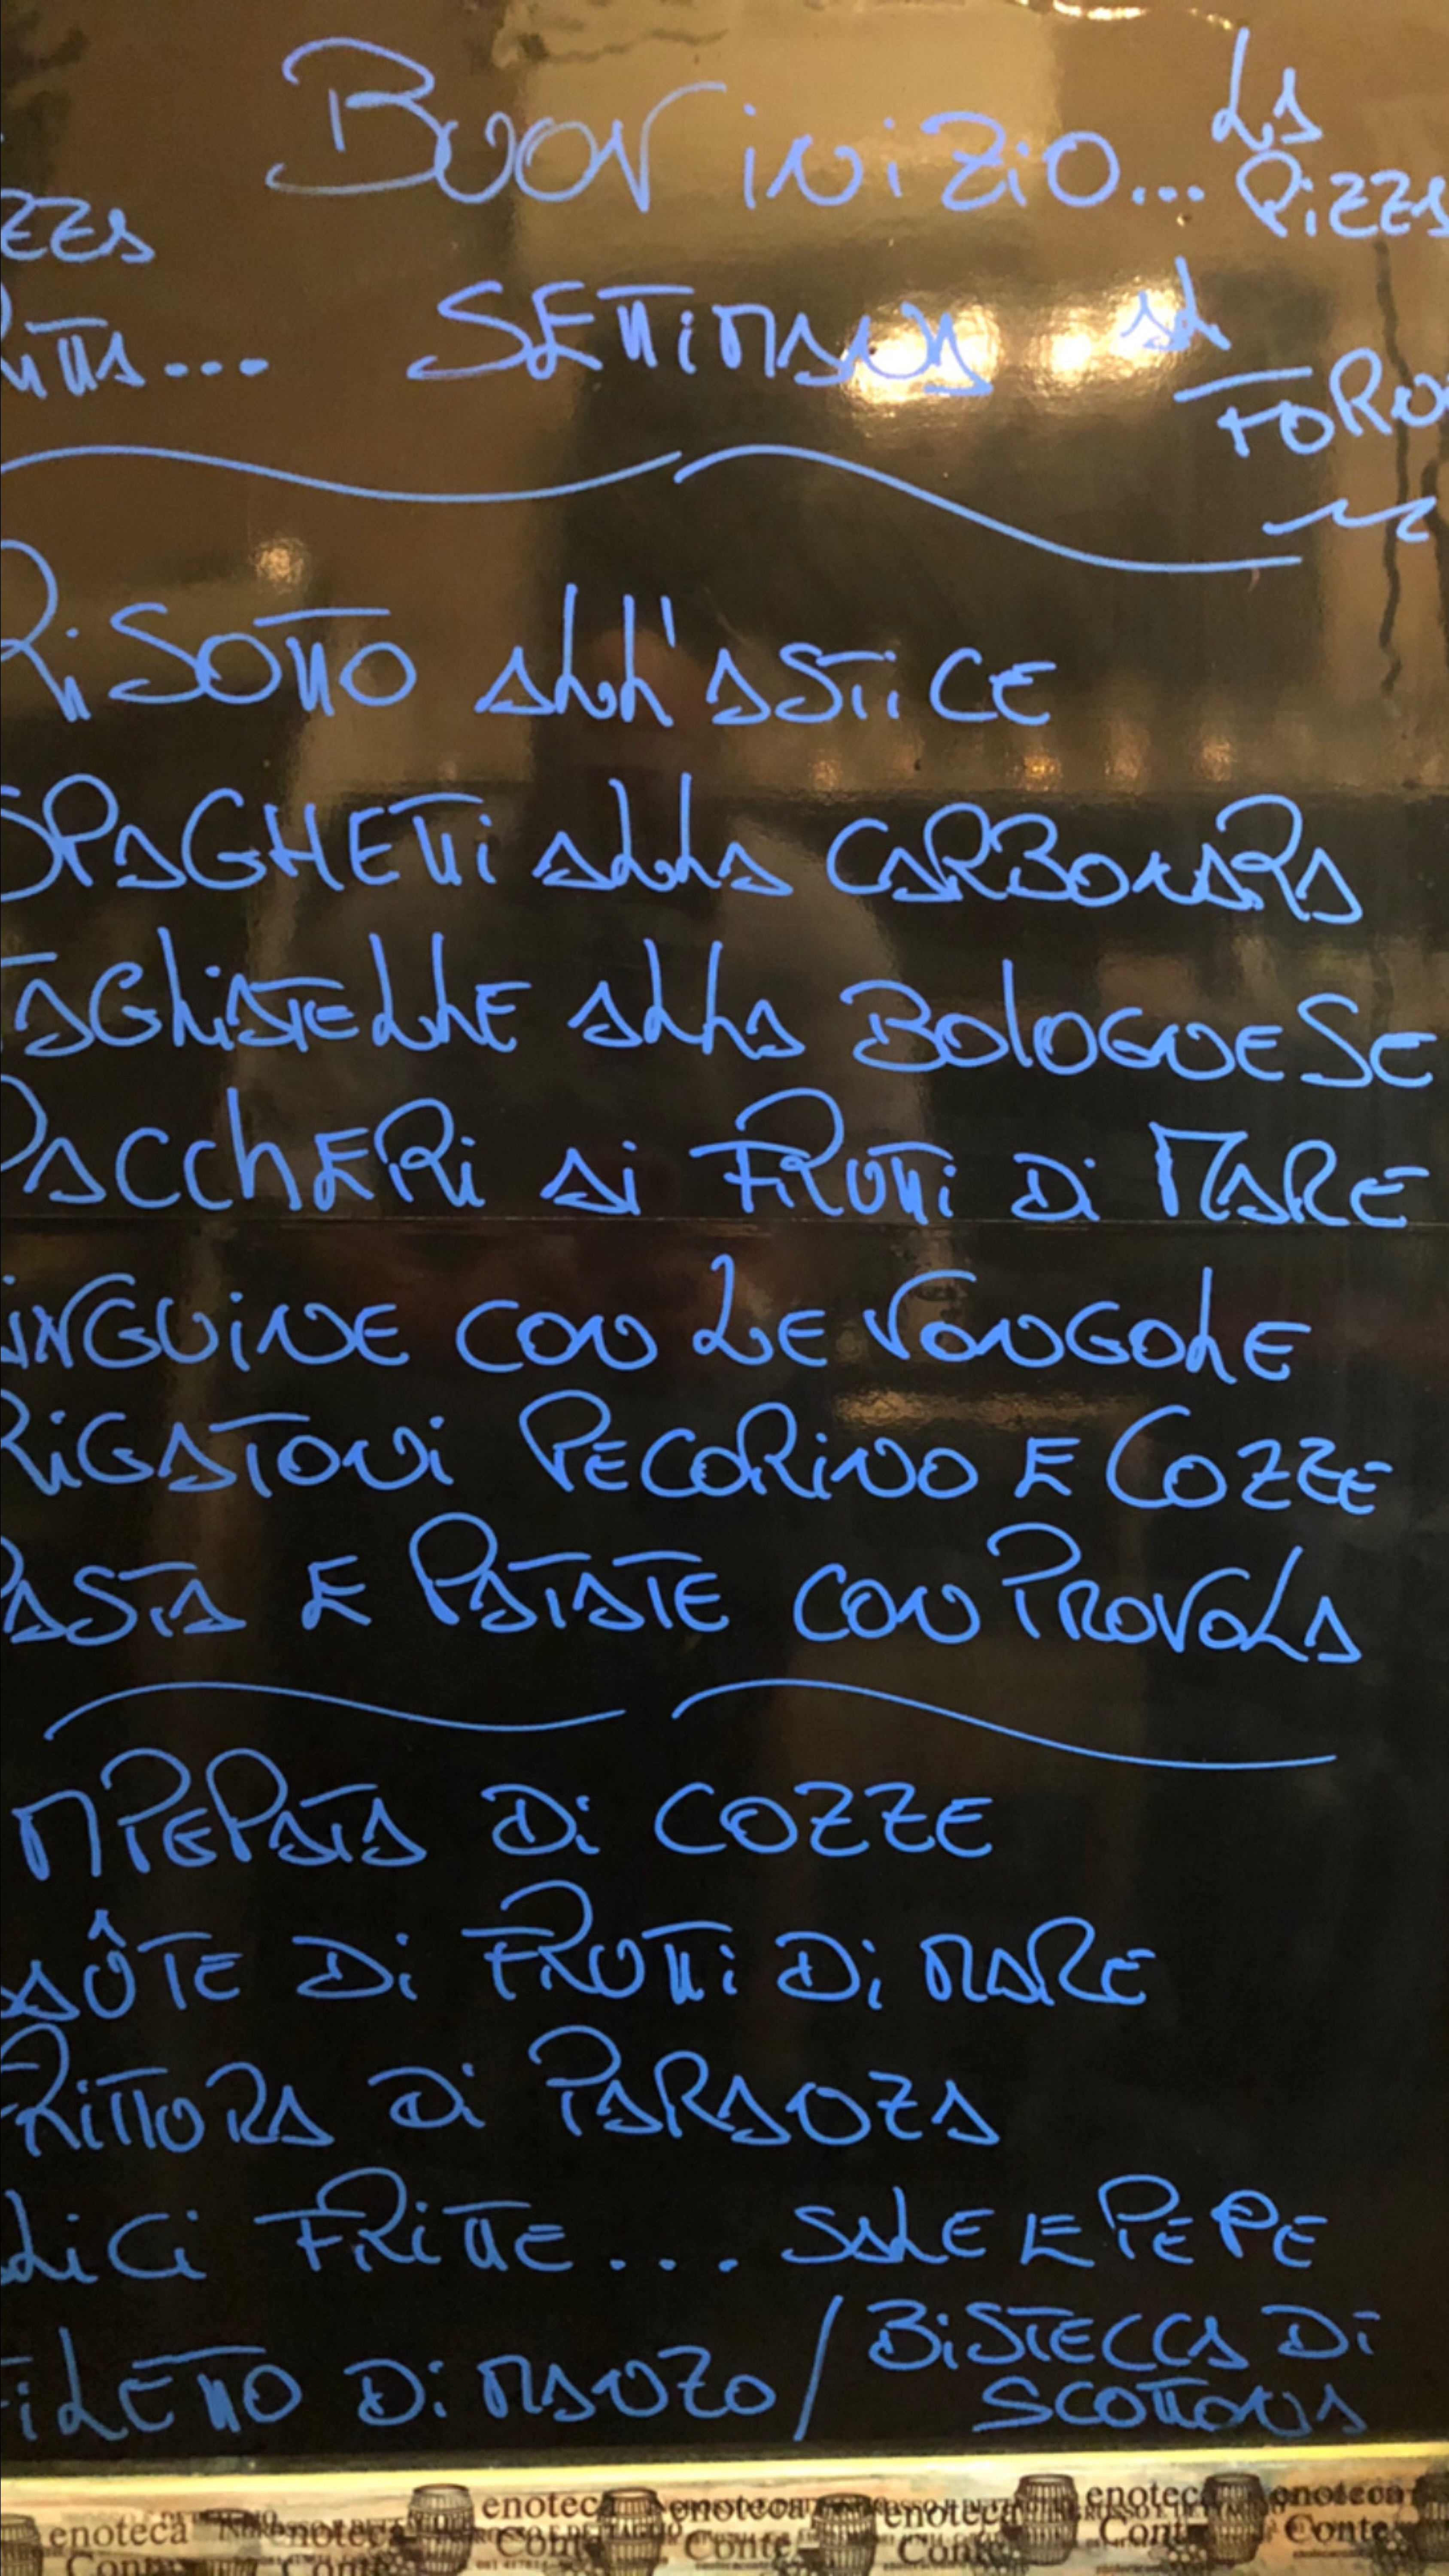 BUON iNiZiO...
LA
PiZZA
ZZA
SETTiMANA
AL
FORNO
RiSOTTO ALL'ASTiCE
SPAGHETTi ALLA CARBONARA
TAGLiATELLE ALLA BOLOGNESE
PACCHERi Ai FRUTTi Di MARE
LINGUiNE CON LE VONGOLE
RiGATONi PECORiNO E COZZE
PASTA E PATATE CON PROVOLA
MPEPATA Di COZZE
SAÔTE Di FRUTTi Di MARE
FRiTTURA Di PARANZA
ALiCi FRiTTE... SALE E PEPE
FiLETTO Di MANZO / BiSTECCA Di
SCOTTONA
enoteca enoteca enoteca enoteca enoteca
enoteca enoteca
Conte Conte Conte Conte Conte